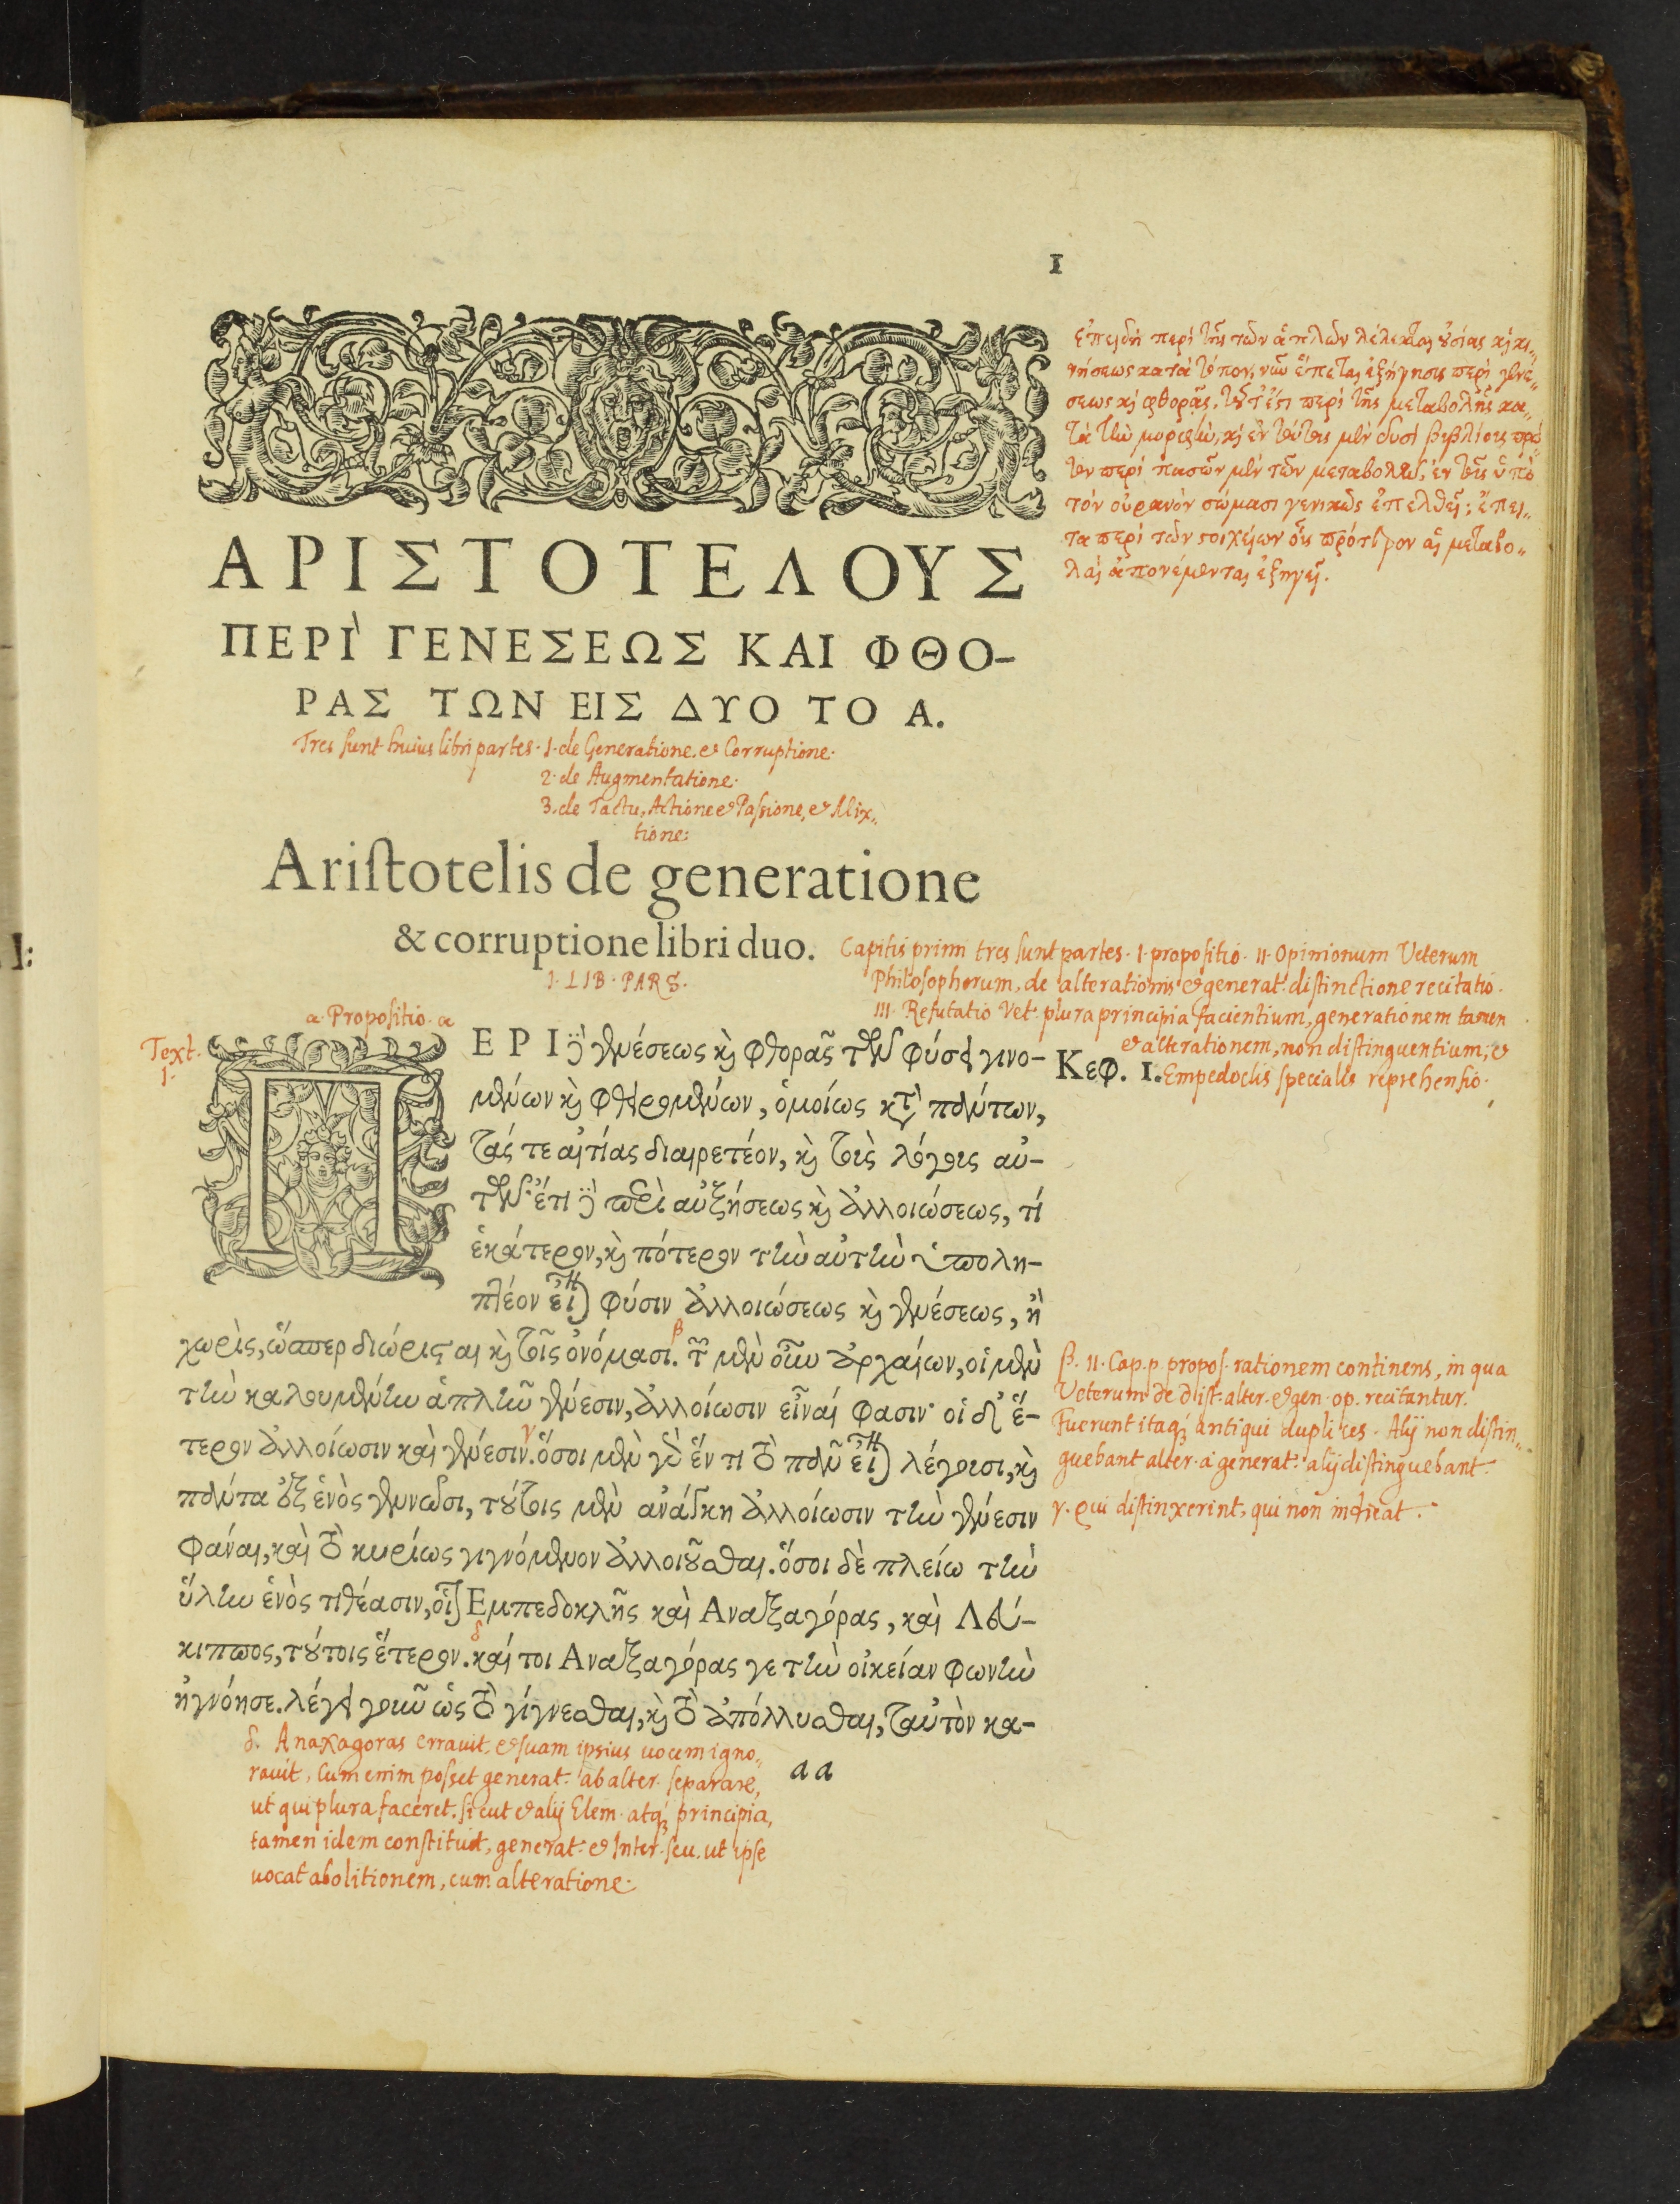 1
ἐπειδὴ περὶ τῆς τῶν ἁπλῶν λέλεκται οὐσίας καὶ κι„
νήσεως κατὰ τόπον, νῦν ἕπεται ἐξήγησις περὶ γενέ„
σεως καὶ φθορᾶς, τοῦτ' ἔστι περὶ τῆς μεταβολῆς κα„
τὰ τὴν μορφὴν, καὶ ἐν τούτοις μὲν δυσὶ βιβλίοις πρῶ„
τον περὶ πασῶν μὲν τῶν μεταβολῶν, ἐν τοῖς ὑπὸ
τὸν οὐρανὸν σώμασι γενικῶς ἐπελθεῖ; ἔπει„
τα περὶ τῶν στοιχείων οἷς πρότερον αἱ μεταβο„
λαὶ ἀπονέμονται ἐξηγεῖ.
ΑΡΙΣΤΟΤΕΛΟΥΣ
ΠΕΡΙ` ΓΕΝΕΣΕΩΣ ΚΑΙ ΦΘΟ-
ΡΑΣ ΤΩΝ ΕΙΣ ΔΥΟ ΤΟ Α.
Tres sunt huius libri partes. 1. de Generatione. et Corruptione.
2. de Augmentatione.
3. de Tactu, Actione et Passione, et Mix„
tione:
Aristotelis de generatione
& corruptione libri duo.
Capitis primi tres sunt partes. I. propositio. II. Opinionum Veterum
Philosophorum, de alterationis et generat. distinctione recitatio.
III. Refutatio Vet. plura principia facientium, generationem tamen
et alterationem, non distinguentium; et
Empedoclis specialis reprehensio.
I. LIB. PARS.
α. Propositio. α
Text.
1.
Κεφ. 1.
ΠΕΡΙ δὲ γενέσεως καὶ φθορᾶς τῶν φύσει γινο-
μένων καὶ φθειρομένων, ὁμοίως κατὰ πάντων,
τάς τε αἰτίας διαιρετέον, καὶ τοὺς λόγους αὐ-
τῶν· ἔτι δὲ περὶ αὐξήσεως καὶ ἀλλοιώσεως, τί
ἑκάτερον, καὶ πότερον τὴν αὐτὴν ὑπολη-
πτέον εἶναι φύσιν ἀλλοιώσεως καὶ γενέσεως, ἢ
χωρὶς, ὥσπερ διώρισται καὶ τοῖς ὀνόμασι. β τῶν μὲν οὖν ἀρχαίων, οἱ μὲν
τὴν καλουμένην ἁπλῆν γένεσιν, ἀλλοίωσιν εἶναί φασιν· οἱ δ' ἕ-
τερον ἀλλοίωσιν καὶ γένεσιν. γ ὅσοι μὲν γὰρ ἕν τι τὸ πᾶν εἶναι λέγουσι, καὶ
πάντα ἐξ ἑνὸς γεννῶσι, τούτοις μὲν ἀνάγκη ἀλλοίωσιν τὴν γένεσιν
φάναι, καὶ τὸ κυρίως γιγνόμενον ἀλλοιοῦσθαι. ὅσοι δὲ πλείω τὴν
ὕλην ἑνὸς τιθέασιν, οἷον Εμπεδοκλῆς καὶ Αναξαγόρας, καὶ Λεύ-
κιππος, τούτοις ἕτερον. δ καί τοι Αναξαγόρας γε τὴν οἰκείαν φωνὴν
ἠγνόησε. λέγει γοῦν ὡς τὸ γίγνεσθαι, καὶ τὸ ἀπόλλυσθαι, ταὐτὸν κα-
β. II. Cap. p. propos. rationem continens, in qua
Veterum de dist. alter. et gen. op. recitantur.
Fuerunt itaq; antiqui duplices. Alij non distin„
guebant alter. à generat: alij distinguebant.
γ. qui distinxerint, qui non indicat.
δ. Anaxagoras erravit, et suam ipsius vocem igno„
ravit, Cum enim posset generat. ab alter. separare,
ut qui plura faceret. sicut et alij Elem. atq; principia,
tamen idem constituit, generat: et Inter. seu. ut ipse
vocat abolitionem, cum alteratione.
aa